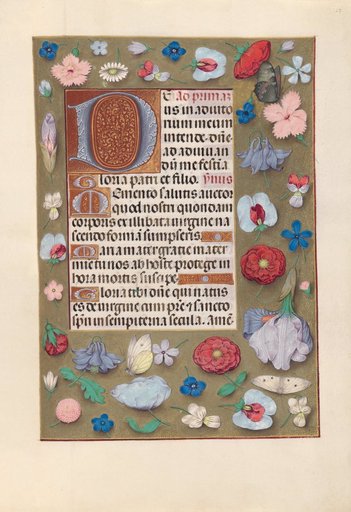 Ad primaz
Deus in adiuto
rium meum
intende · dñe
ad adiuuan
dū me festīa
Gloria patri et filio. ymnus
Memento salutis auctor
quod nostri quondam
corporis ex illibata virgine na
scendo formā sumpseris
Maria mater gratie mater
mie tu nos ab hoste protege in
hora mortis suscipe
Gloria tibi dñe qui natus
es de virgine cum pr̄e ⁊ sancto
spū in sempiterna secula. Amē